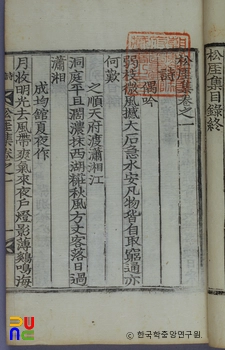 松厓集目錄終
松厓集卷之一
詩
偶吟
弱枝微風撼大石急水安凡物皆自取窮通亦
何歎
之順天府渡瀟湘江
洞庭平且濶濃抹西湖粧秋風方丈客落日過
瀟湘
成均館夏夜作
月枚明光去風帶爽氣來夜戶燈影薄鷄鳴海
松厓集卷之一
한국학중앙연구원